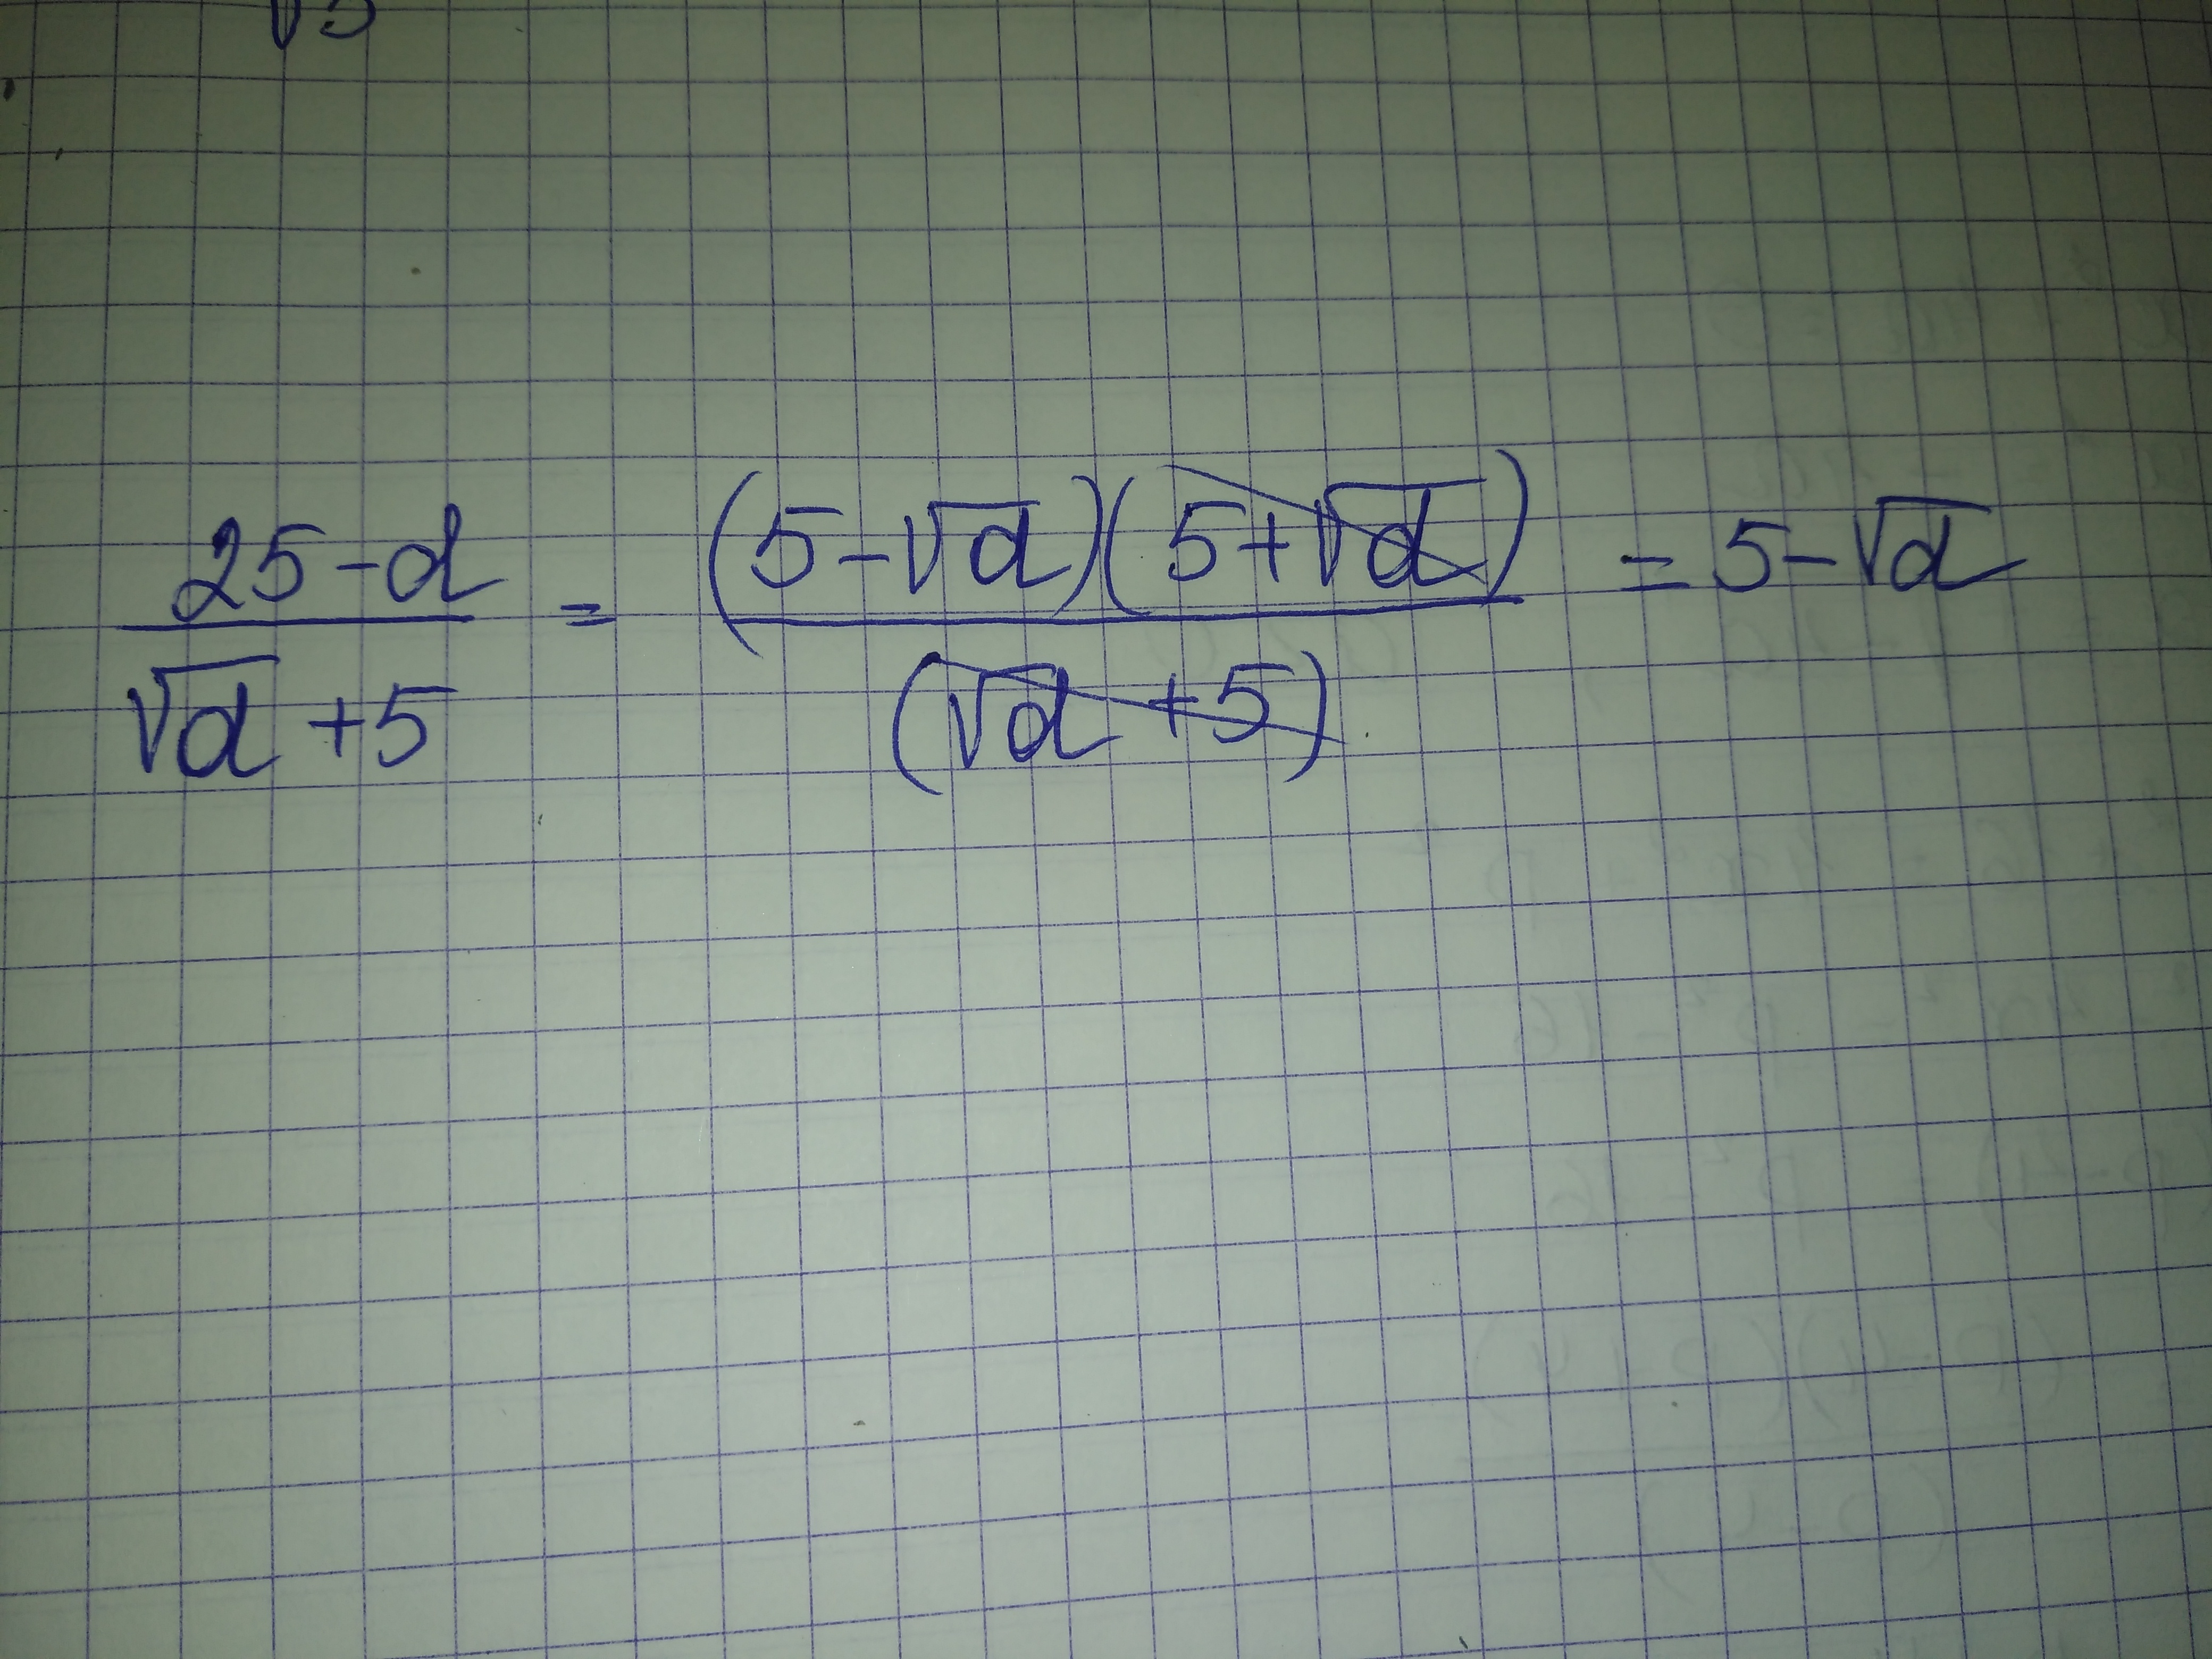 √5
25-d / √d +5 = (5-√d)(5+√d) / (√d +5) = 5-√d